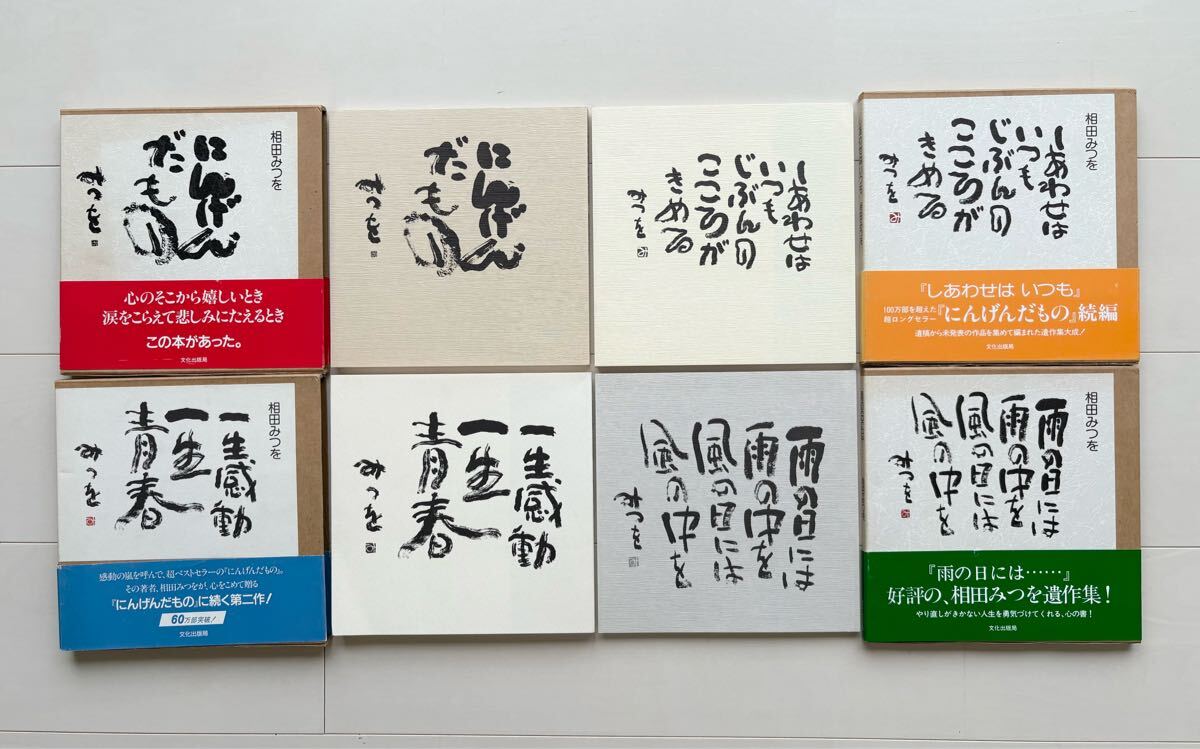 相田みつを
にんげん
だもの
みつを
心のそこから嬉しいとき
涙をこらえて悲しみにたえるとき
この本があった。
文化出版局
にんげん
だもの
みつを
しあわせは
いつも
じぶんの
こころが
きめる
みつを
相田みつを
しあわせは
いつも
じぶんの
こころが
きめる
みつを
『しあわせは いつも』
100万部を超えた
超ロングセラー『にんげんだもの』続編
遺稿から未発表の作品を集めて編まれた遺作集大成!
文化出版局
相田みつを
一生感動
一生
青春
みつを
感動の嵐を呼んで、超ベストセラーの『にんげんだもの』。
その著者、相田みつをが、心をこめて贈る
『にんげんだもの』に続く第二作!
60万部突破!
文化出版局
一生感動
一生
青春
みつを
雨の日には
雨の中を
風の日には
風の中を
みつを
相田みつを
雨の日には
雨の中を
風の日には
風の中を
みつを
『雨の日には……』
好評の、相田みつを遺作集!
やり直しがきかない人生を勇気づけてくれる、心の書!
文化出版局